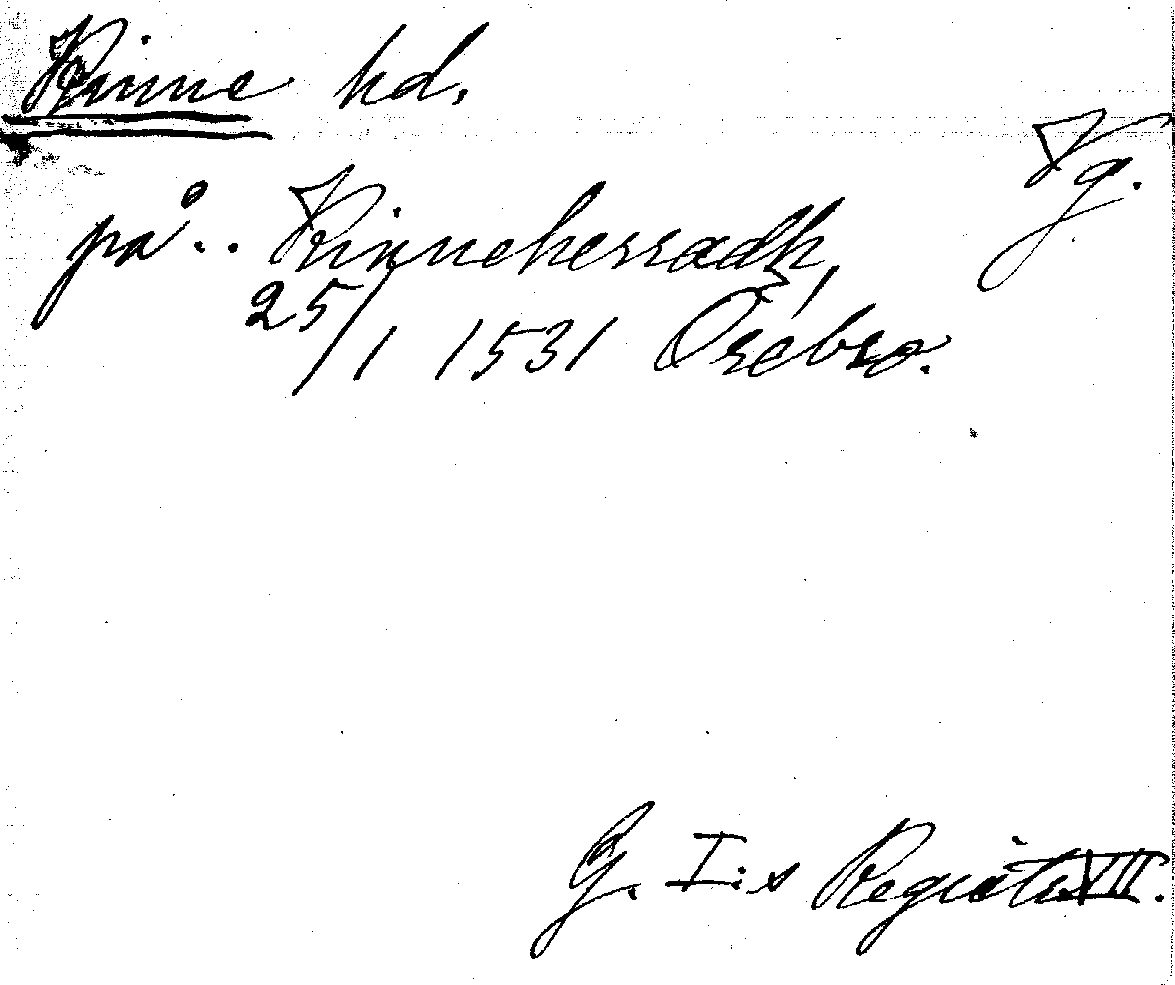 Kinne hd.
Vg.
på.. Kinneherradh,
25/1 1531 Örebro.
G. I:s Registr. VII.